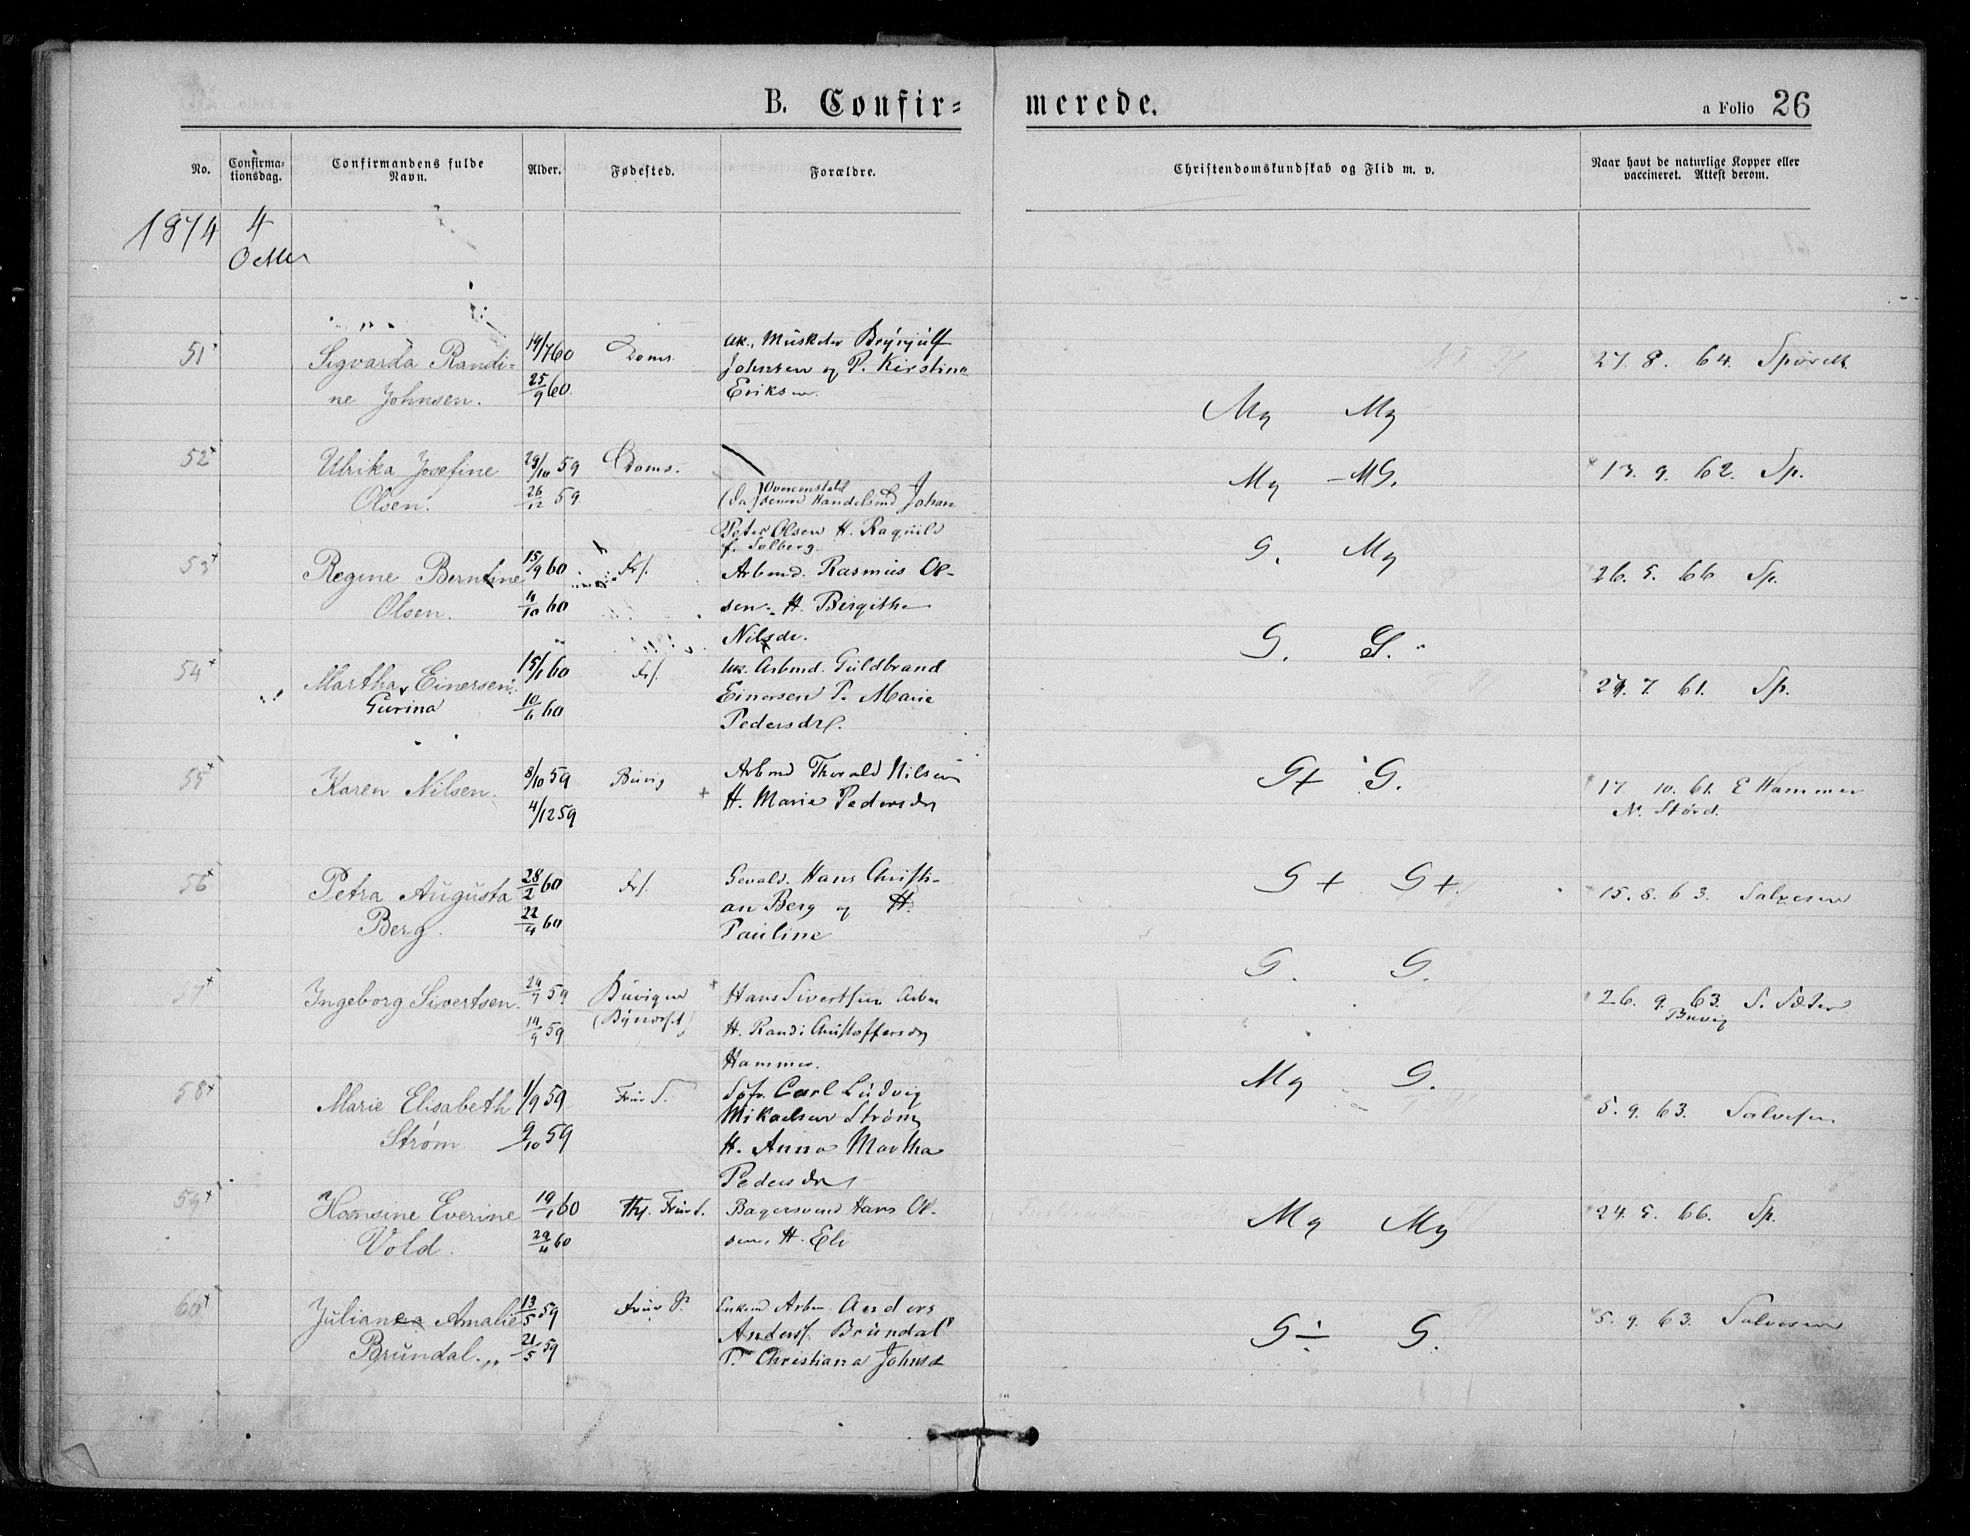 B. Confir= merede. a Folio 26
No. Confirma=tionsdag. Confirmandens fulde Navn. Alder. Fødested. Forældre. Christendomskundskab og Flid m. v. Naar havt de naturlige Kopper eller vaccineret. Attest derom.
1874 4
Octbr
51 Sigvarda Randi= 19/7 60 Doms. uk. Musketer Brynjulf
ne Johnsen. 25/9 60. Johnsen og P. Kirstine
Eriksen
Mg Mg 27. 8. 64.
52 Ulrika Josefine 29/10 59 Doms.
Olsen. 26/12 59 Handelsmd Johan
Peter Olsen H. Ragnild
f. Solberg.
Mg MG. 13. 9. 62. Sp.
53 Regine Berntine 15/9 60 Frf. Arbmd. Rasmus Ol-
Olsen. 4/10 60 sen. H. Birgithe
Nilsdr.
G. Mg 26. 5. 66 Sp.
54 Martha Einersen. 15/1 60 Frf. uk. Arbmd. Guldbrand
Gurina 10/6 60 Einersen P. Marie
Pedersdr.
G. G. 29. 7. 61. Sp.
55 Karen Nilsen. 8/10 59 Buvig Arbmd Thorald Nilsen
4/12 59 H. Marie Pedersdr
G+ G. 17. 10. 61. E Hammer
N. Størd.
56 Petra Augusta 28/2 60 Frf. Gevald. Hans Christi-
Berg. 22/4 60 an Berg og H.
Pauline
G+ G+. 15. 8. 63. Salvesen
57 Ingeborg Sivertsen. 24/7 59 Buvigen Hans Sivertsen Arbm
19/9 59 H. Randi Christoffersdr
Hammer.
G. G. 26. 9. 63. S. Sæter
Buvig
58 Marie Elisabeth 1/9 59 Frue S. Carl Ludvig
Strøm. 9/10 59 Mikaelsen Strøm
H. Anna Martha
Pedersdr
Mg G. 5. 9. 63. Salvesen
59 Hansine Everine 19/1 60 Frue S. Bagersvend Hans Ol-
Vold. 29/4 60 sen, H. Eli
Mg Mg 24. 5. 66. Sp.
60 Juliane Amalie 13/5 59 Frue S. Enkemd Arbm Anders
Brundal. 21/5 59 Anders. Brundal
P. Christiana Johnsd
G÷ G. 5. 9. 63. Salvesen